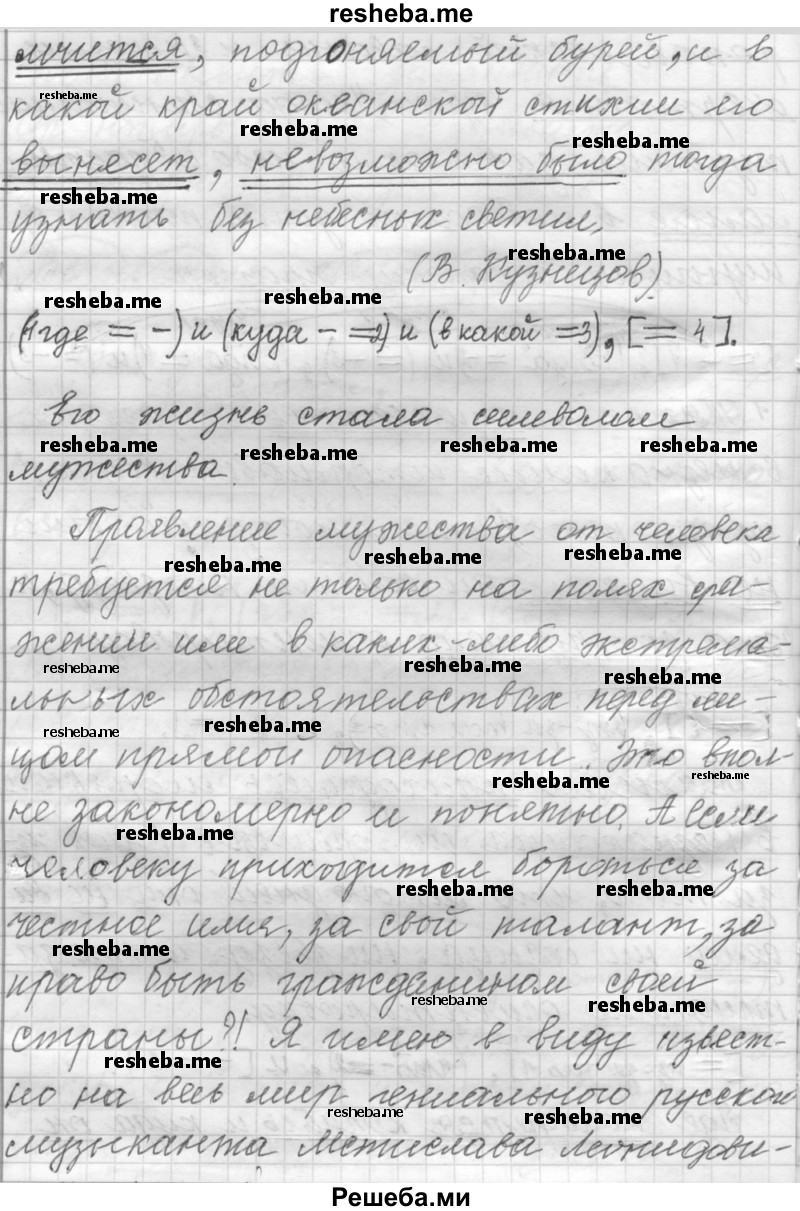 resheba.me
мчится, подгоняемый бурей, и в
какой край океанской стихии его
вынесет, невозможно было тогда
узнать без небесных светил.
(В. Кузнецов).
(1где = –) и (куда – =2) и (в какой =3), [= 4].
Его жизнь стала символом
мужества.
Проявление мужества от человека
требуется не только на полях сра-
жений или в каких-либо экстрема-
льных обстоятельствах перед ли-
цом прямой опасности. Это впол-
не закономерно и понятно. А если
человеку приходится бороться за
честное имя, за свой талант, за
право быть гражданином своей
страны?! Я имею в виду извест-
но на весь мир гениального русского
музыканта Мстислава Леонидови-
Решеба.ми